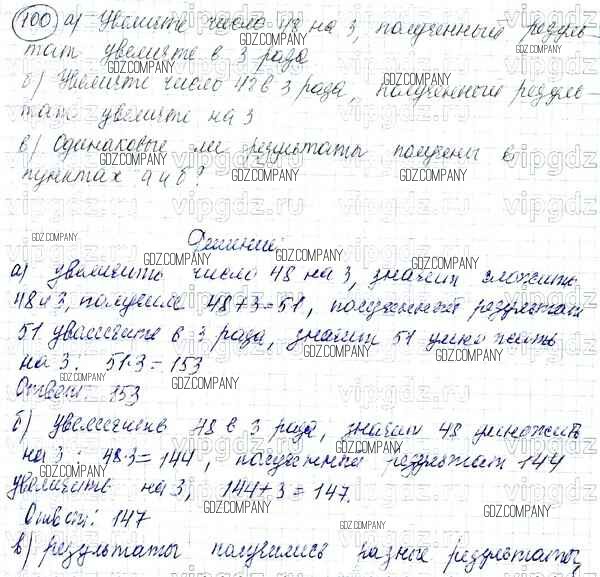 100 а) Увеличьте число 48 на 3, полученный резуль-
тат увеличьте в 3 раза
б) Увеличьте число 48 в 3 раза, полученный резуль-
тат увеличьте на 3
в) Одинаковые ли результаты получены в
пунктах а и б?
Решение:
а) увеличить число 48 на 3, значит сложить
48 и 3, получим 48+3=51, полученный результат
51 увеличите в 3 раза, значит 51 умножать
на 3: 51·3=153
Ответ: 153
б) увеличить 48 в 3 раза, значит 48 умножить
на 3: 48·3=144, полученный результат 144
увеличить на 3, 144+3=147.
Ответ: 147
в) результаты получились разные результаты,